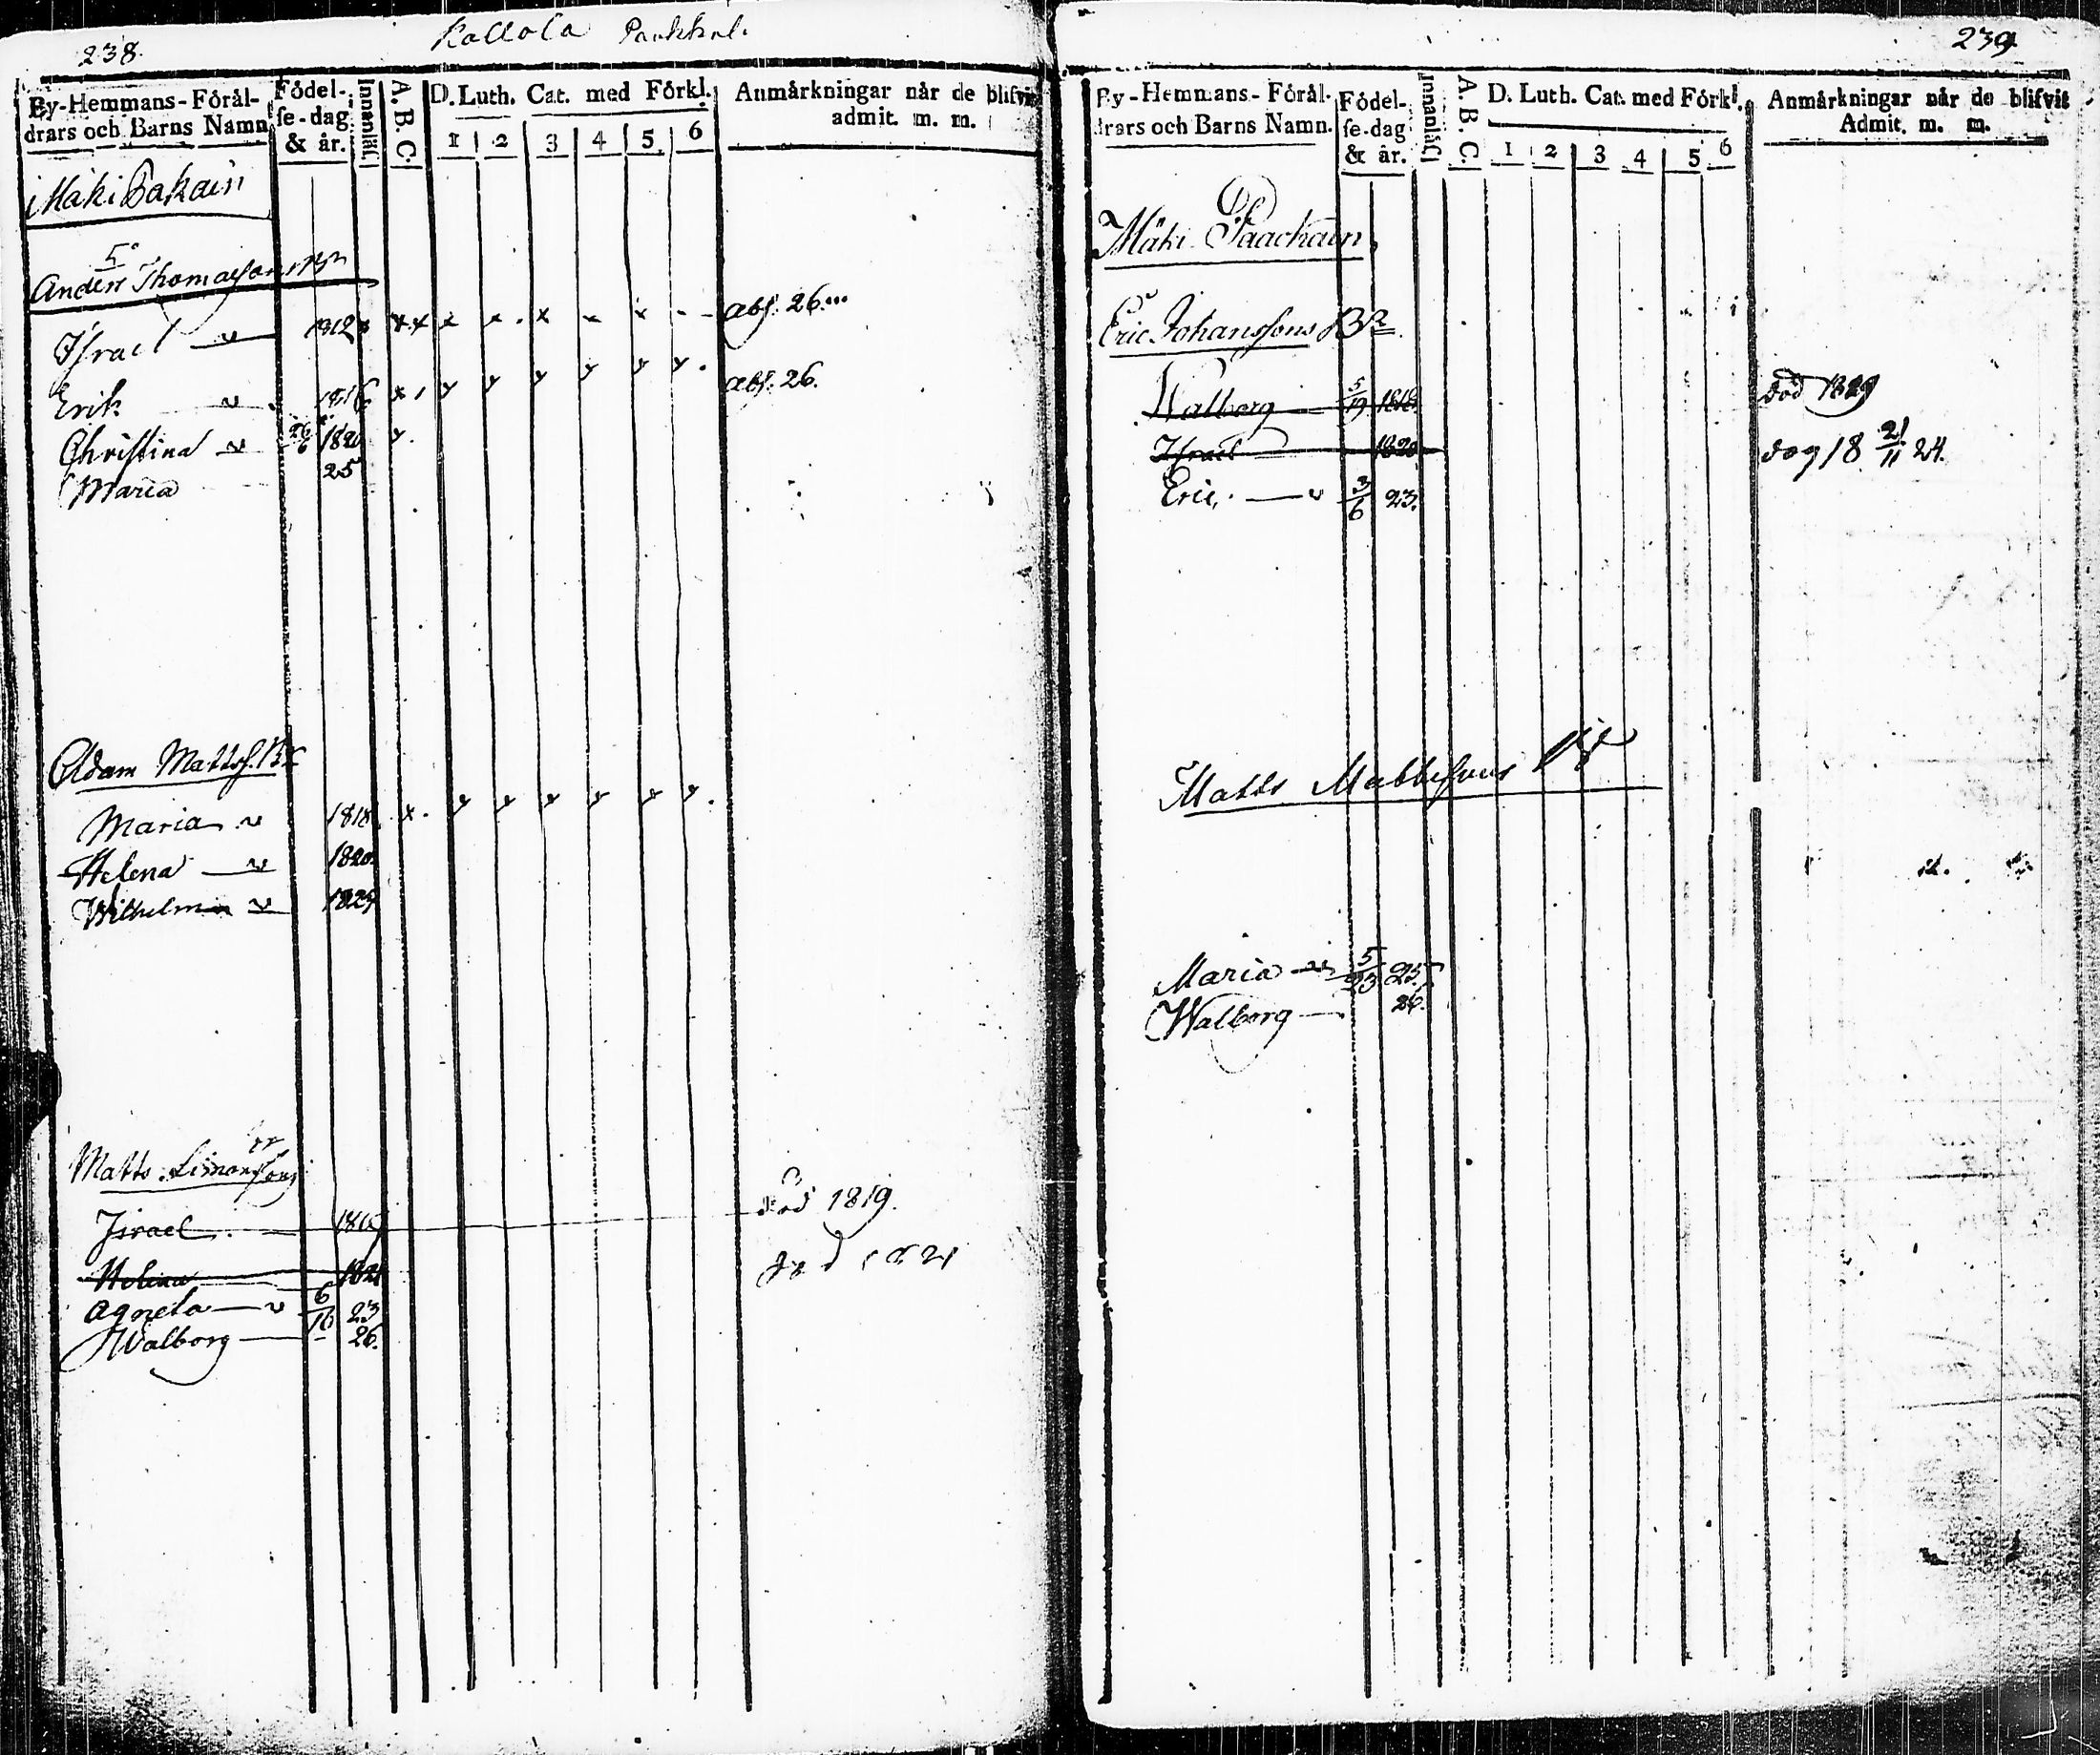 238.
By-Hemmans-Förål-
drars och Barns Namn
Födel-
se-dag
& år.
Innanläs.
A. B. C.
D. Luth. Cat. med Förkl.
1 2 3 4 5 6
Anmårkningar når de blifvit
admit. m. m.
Måki Pakain
Anders Thomassons Brn
Israel v 1812 x x x x x x x abs. 26
Erik v 1816 x y y y y y y abs. 26.
Christina v 26/6 1820 y.
Maria 25
Adam Matts. Br
Maria v 1818 x. y y y y y y.
Helena v 1820
Wilhelm v 1824
Matts Simonssons
Israel 1815 död 1819.
Helena 1821 död 1821
Agneta v 6/16 23
Walborg 26.
239
By-Hemmans-Förål-
drars och Barns Namn.
Födel-
se-dag
& år.
Innanläs.
A. B. C.
D. Luth. Cat. med Förkl.
1 2 3 4 5 6
Anmårkningar når de blifvit
Admit. m. m.
Måki Paackain
Eric Johanssons Bn
Walborg 5/19 1818 död 1819
Israel 1820 dog 18 21/11 24.
Eric. v 3/6 23.
Matts Mattssons
Maria v 5/23 25
Walborg 26.